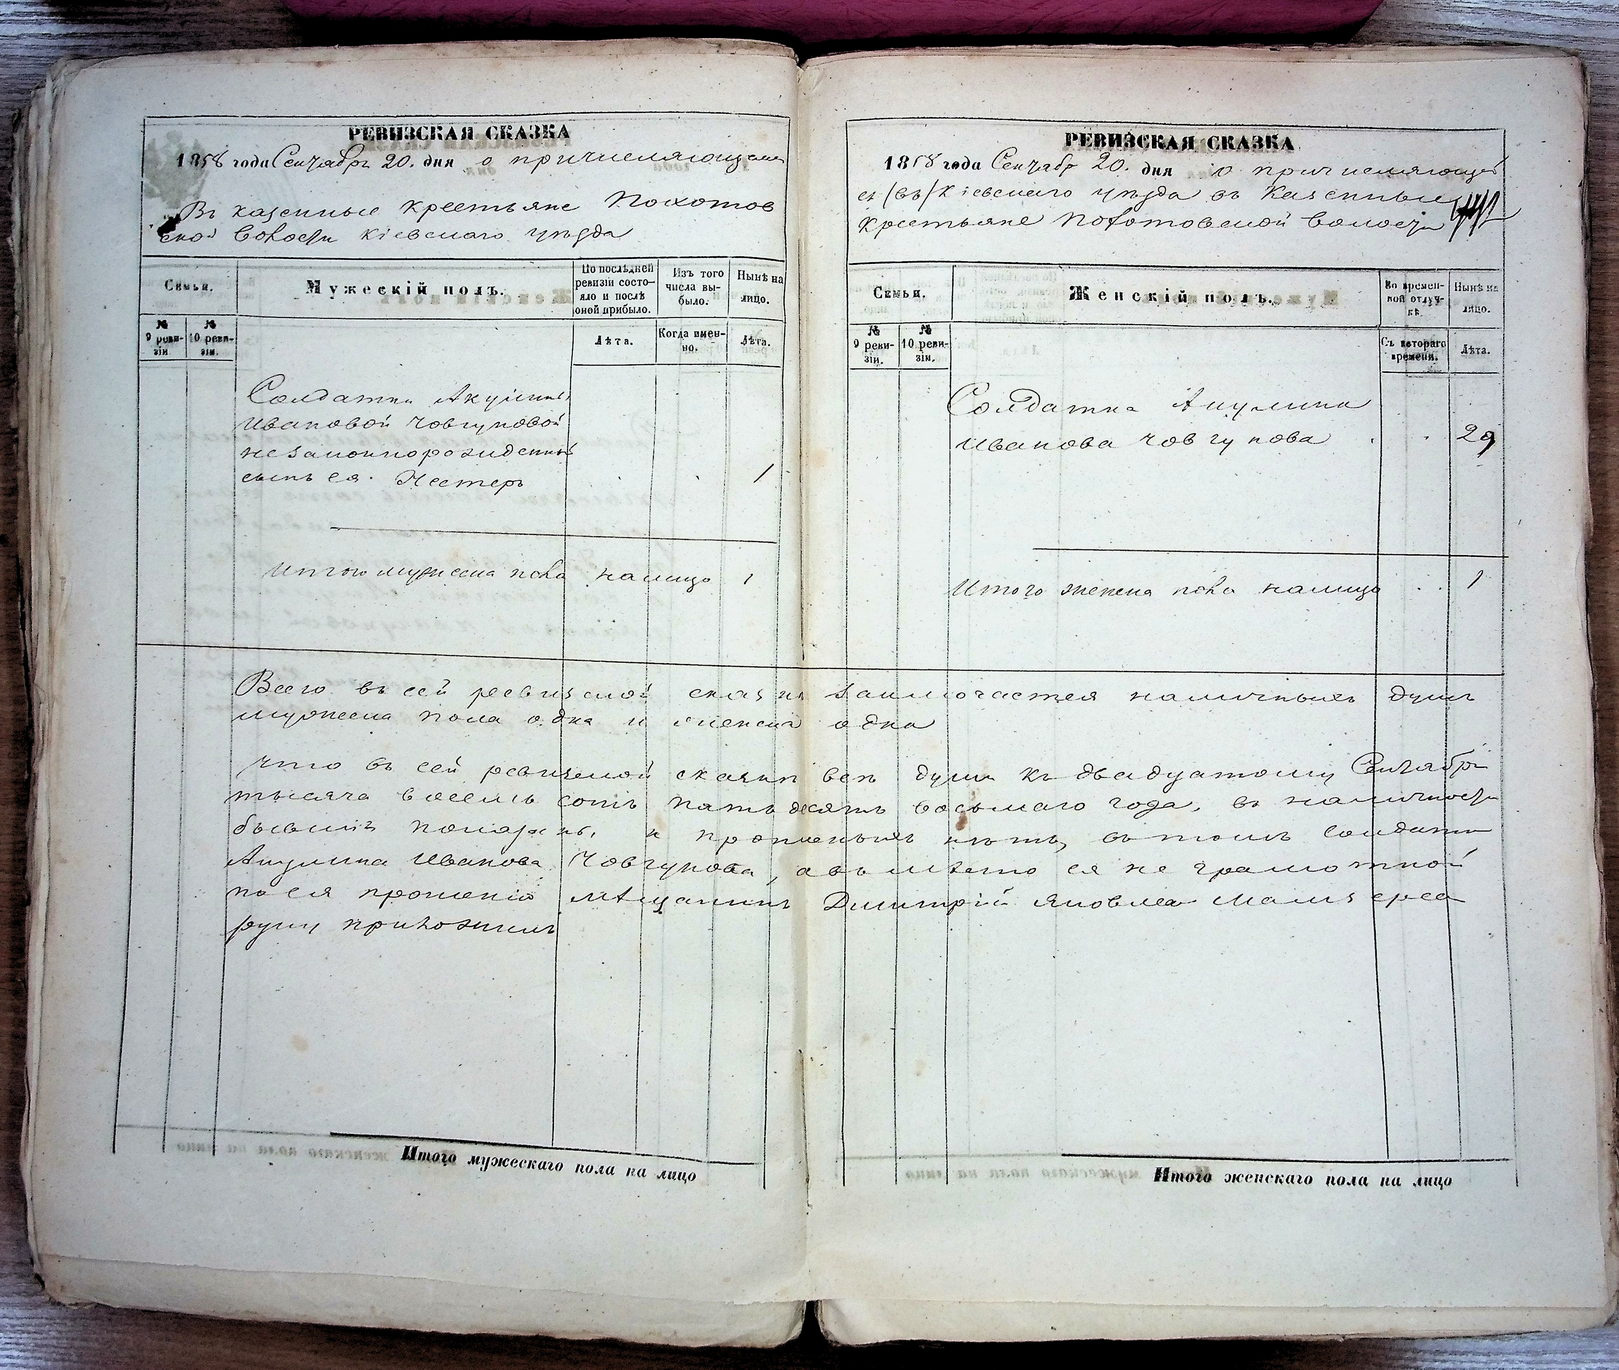 РЕВИЗСКАЯ СКАЗКА
1858 года Сентября 20. дня о причисляющемся
въ казенные крестьяне Похотов
ской волости Кіевскаго уѣзда
Семьи.
Мужескій полъ.
По послѣдней ревизіи состо-
яло и послѣ оной прибыло.
Изъ того числа вы-
было.
Нынѣ на лицо.
№ 9 реви-
зіи
№ 10 реви-
зіи.
Лѣта.
Когда имен-
но.
Лѣта.
Солдатки Акулины
Ивановой Човгуновой
незаконнорожденный
сынъ ея. Нестеръ 1
Итого мужеска пола налицо 1
РЕВИЗСКАЯ СКАЗКА
1858 года Сентября 20. дня о причисляющей
ся (въ) Кіевскаго уѣзда въ Казенные
крестьяне Похотовской волости
Семьи.
Женскій полъ.
Во времен-
ной отлуч-
кѣ.
Нынѣ на лицо.
№ 9 реви-
зіи.
№ 10 реви-
зіи.
Съ котораго времени.
Лѣта.
Солдатка Акулина
Иванова Човгунова 29
Итого женска пола налицо 1
Всего въ сей ревизской сказкѣ заключается наличныхъ душъ
мужеска пола одна и женска одна
Что въ сей ревизской сказкѣ всѣ души къ двадцатому Сентября
тысяча восемь сотъ пятьдесятъ восьмаго года, въ наличности
бывшія показаны, и прописныхъ нѣтъ, въ томъ Солдатка
Акулина Иванова Човгунова, а вмѣсто ея не грамотной
по ея прошенію мѣщанинъ Димитрій Яковлевъ
руку приложилъ
Итого мужескаго пола на лицо
Итого женскаго пола на лицо